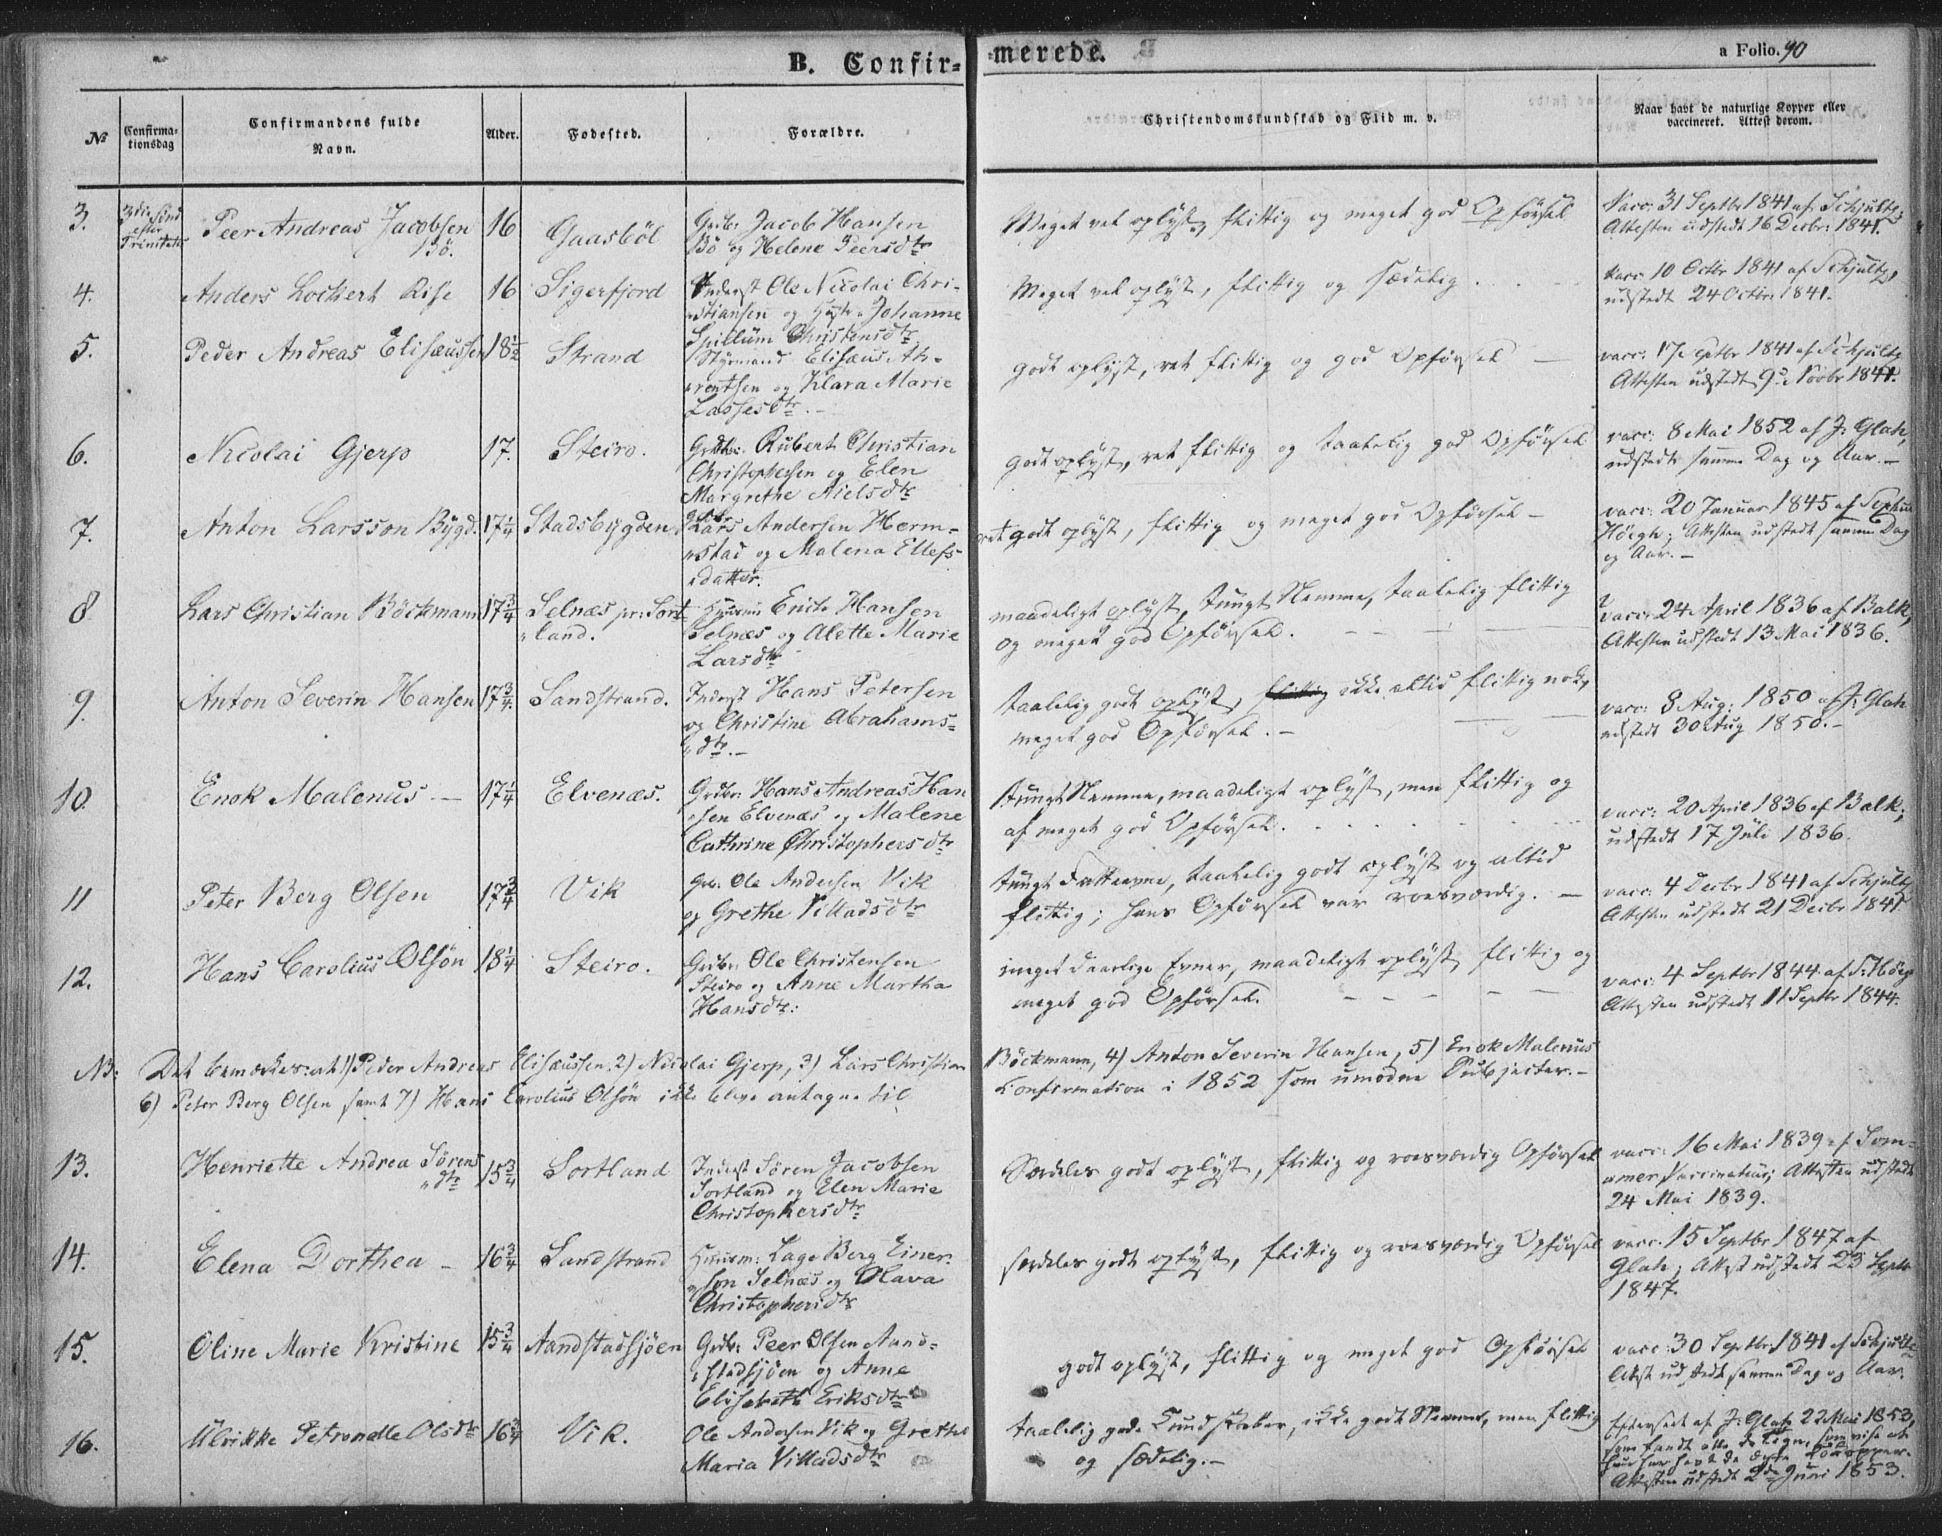 B. Confir-
-merede.
a Folio. 90
No
Confirma-
tionsdag
Confirmandens fulde
Navn.
Alder.
Fødested.
Forældre.
Christendomskundskab og Flid m. v.
Naar havt de naturlige Kopper eller
vaccineret. Attest derom.
3.
3die Sønd
efter
Trinitatis
Peer Andreas Jacobsen
Bö.
16
Gaasböl
Grdbr: Jacob Hansen
Bö og Helene Peersdtr
Meget vel oplyst, flittig og meget god Opførsel
Vacc: 31 Septbr 1841 af Schjultz;
Attesten udstedt 16 Decbr: 1841.
4.
Anders Lockert Rise
16
Sigerfjord
Inderst Ole Nicolai Chri-
stiansen og Hustr: Johanne
Spillum Christensdtr
Meget vel oplyst, flittig og sædelig . . .
Vacc: 10 Octbr 1841 af Schjultz,
udstedt 24 Octbr: 1841.
5.
Peder Andreas Elisæussen
18½
Strand
Styrmand Elisæus Ah-
rentsen og Klara Marie
Lassesdtr. -
godt oplyst, ret flittig og god Opførsel -
vacc: 17 Septbr 1841 af Schjultz
Attesten udstedt 9de Novbr 1841.
6.
Nicolai Gjerp
17.
Steiro.
Grdbr: Rubert Christian
Christophersen og Elen
Margrethe Nielsdtr
godt oplyst, ret flittig og taalelig god Opførsel
vacc: 8 Mai 1852 af J: Glatz,
udstedt samme Dag og Aar. -
7.
Anton Larsson Bygd.
17¼
Stadsbygden
Grdbr:
Lars Andersen Herm-
stad og Malena Ellefs-
datter.
ret godt oplyst, flittig og meget god Opførsel -
vacc: 20 Januar 1845 af
Höegh; Attesten udstedt samme Dag
og Aar. -
8
Lars Christian Böckmann
17¾
Selnæs pr: Sort
land.
Huusm: Erich Hansen
Selnæs og Alette Marie
Larsdtr
maadeligt oplyst, tungt Nemme, taalelig flittig
og meget god Opførsel. - - - -
vacc: 24 April 1836 af Balk,
Attesten udstedt 13 Mai 1836.
9.
Anton Severin Hansen
17¾
Sandstrand.
Inderst Hans Petersen
og Christine Abrahams-
dtr. -
taalelig godt oplyst, flittig ikke altid flittig nok,
meget god Opførsel. -
vacc: 8 Aug: 1850 af J: Glatz
udstedt 30 Aug 1850. -
10.
Enok Malenus. -
17¼
Elvenæs.
Grdbr: Hans Andreas Han
sen Elvenæs og Malene
Cathrine Christophersdtr
tungt Nemme, maadeligt oplyst, men flittig og
af meget god Opførsel. . . .
vacc: 20 April 1836 af Balk;
udstedt 17 Juli 1836.
11
Peter Berg Olsen
17¾
Vik
Grb. Ole Andersen Vik
og Grethe Villadsdtr
tungt Fatteevne, taalelig godt oplyst og altid
flittig; hans Opførsel var roesværdig. -
vacc: 4 Decbr 1841 af Schjultz
Attesten udstedt 21 Decbr 1841
12.
Hans Carolius Olsön
18¼
Steiro.
Grdbr: Ole Christensen
Steiro og Anne Martha
Hansdtr:
meget daarlige Evner, maadeligt oplyst, flittig og
meget god Opførsel. - - - -
vacc: 4 Septbr 1844 af S: Höegh
Attesten udstedt 11 Septbr 1844.
NB: Det bemærkes: at 1) Peder Andreas Elisæussen. 2) Nicolai Gjerp, 3) Lars Christian Böckmann, 4) Anton Severin Hansen, 5) Enok Malenus
6) Peter Berg Olsen samt 7) Hans Carolius Olsön ikke bleve antagne til Confirmation i 1852 som umodne Subjecter. -
13.
Henriette Andrea Sörens
dtr
15¾
Sortland
Inderst Sören Jacobsen
Sortland og Elen Marie
Christophersdtr
Særdeles godt oplyst, flittig og roesværdig Opførsel
vacc: 16 Mai 1839 af Som-
mer, Vaccinateur; Attesten udstedt
24 Mai 1839.
14.
Elena Dorthea -
16¾
Sandstrand
Huusm: Lage Berg Einer-
sen Selnæs og Olava
Christophersdtr
særdeles godt oplyst, flittig og roesværdig Opførsel
vacc: 15 Septbr 1847 af
Glatz; Attest udstedt 23 Septr
1847.
15.
Oline Marie Kristine
15¾
Aandstadsjöen
Grdbr: Peer Olsen Aand-
stadsjöen og Anne
Elisabeth Eriksdtr
godt oplyst, flittig og meget god Opførsel
vacc: 30 Septbr 1841 af Schjultz
Attest udstedt samme Dag og Aar.
16.
Ulrikke Petronelle Olsdtr
16¾
Vik.
Ole Andersen Vik og Grethe
Maria Villadsdtr
taalelig gode Kundskaber, ikke godt Nemme, men flittig
og sædelig. -
Efterseet af J: Glatz 22 Mai 1853,
som fandt alle de Tegn, som vise at
hun har havt de ægte Kokopper.
Attesten udstedt 2den Juni 1853.